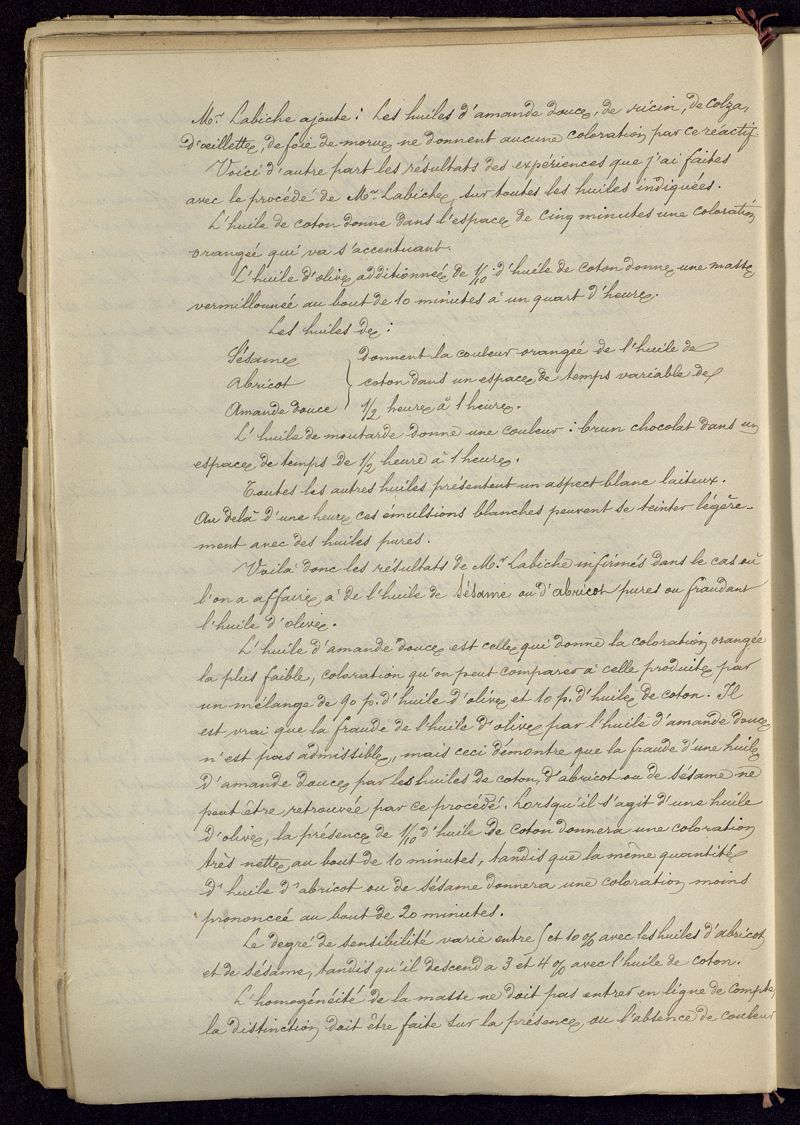 Mr Labiche ajoute : Les huiles d'amande douce, de ricin, de colza,
d'œillette, de foie de morue ne donnent aucune coloration par ce réactif.
Voici d'autre part les résultats des expériences que j'ai faites
avec le procédé de Mr Labiche, sur toutes les huiles indiquées.
L'huile de coton donne dans l'espace de cinq minutes une coloration
orangée qui va s'accentuant.
L'huile d'olive additionnée de 1/10 d'huile de coton donne une masse
vermillonnée au bout de 10 minutes à un quart d'heure.
Les huiles de :
Sésame } donnent la couleur orangée de l'huile de
Abricot } coton dans un espace de temps variable de
Amande douce } 1/2 heure à 1 heure.
L'huile de moutarde donne une couleur : brun chocolat dans un
espace de temps de 1/2 heure à 1 heure.
Toutes les autres huiles présentent un aspect blanc laiteux.
Au delà d'une heure ces émulsions blanches peuvent se teinter légère-
ment avec des huiles pures.
Voilà donc les résultats de Mr Labiche infirmés dans le cas où
l'on a affaire à de l'huile de sésame ou d'abricot pures ou fraudant
l'huile d'olive.
L'huile d'amande douce est celle qui donne la coloration orangée
la plus faible, coloration qu'on peut comparer à celle produite par
un mélange de 90 p. d'huile d'olive et 10 p. d'huile de coton. Il
est vrai que la fraude de l'huile d'olive par l'huile d'amande douce
n'est pas admissible, mais ceci démontre que la fraude d'une huile
d'amande douce par les huiles de coton, d'abricot ou de sésame ne
peut être retrouvée par ce procédé. Lorsqu'il s'agit d'une huile
d'olive, la présence de 1/10 d'huile de coton donnera une coloration
très nette au bout de 10 minutes, tandis que la même quantité
d'huile d'abricot ou de sésame donnera une coloration moins
prononcée au bout de 20 minutes.
Le degré de sensibilité varie entre 5 et 10 % avec les huiles d'abricot
et de sésame, tandis qu'il descend a 3 et 4 % avec l'huile de coton.
L'homogénéité de la masse ne doit pas entrer en ligne de compte,
la distinction doit être faite sur la présence, ou l'absence de couleur